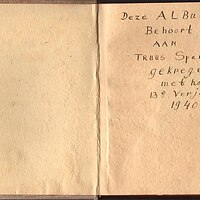 Deze ALBu
Behoort
AAN
TRUUS Spe
gekrege
met ha
13e Verj
1940